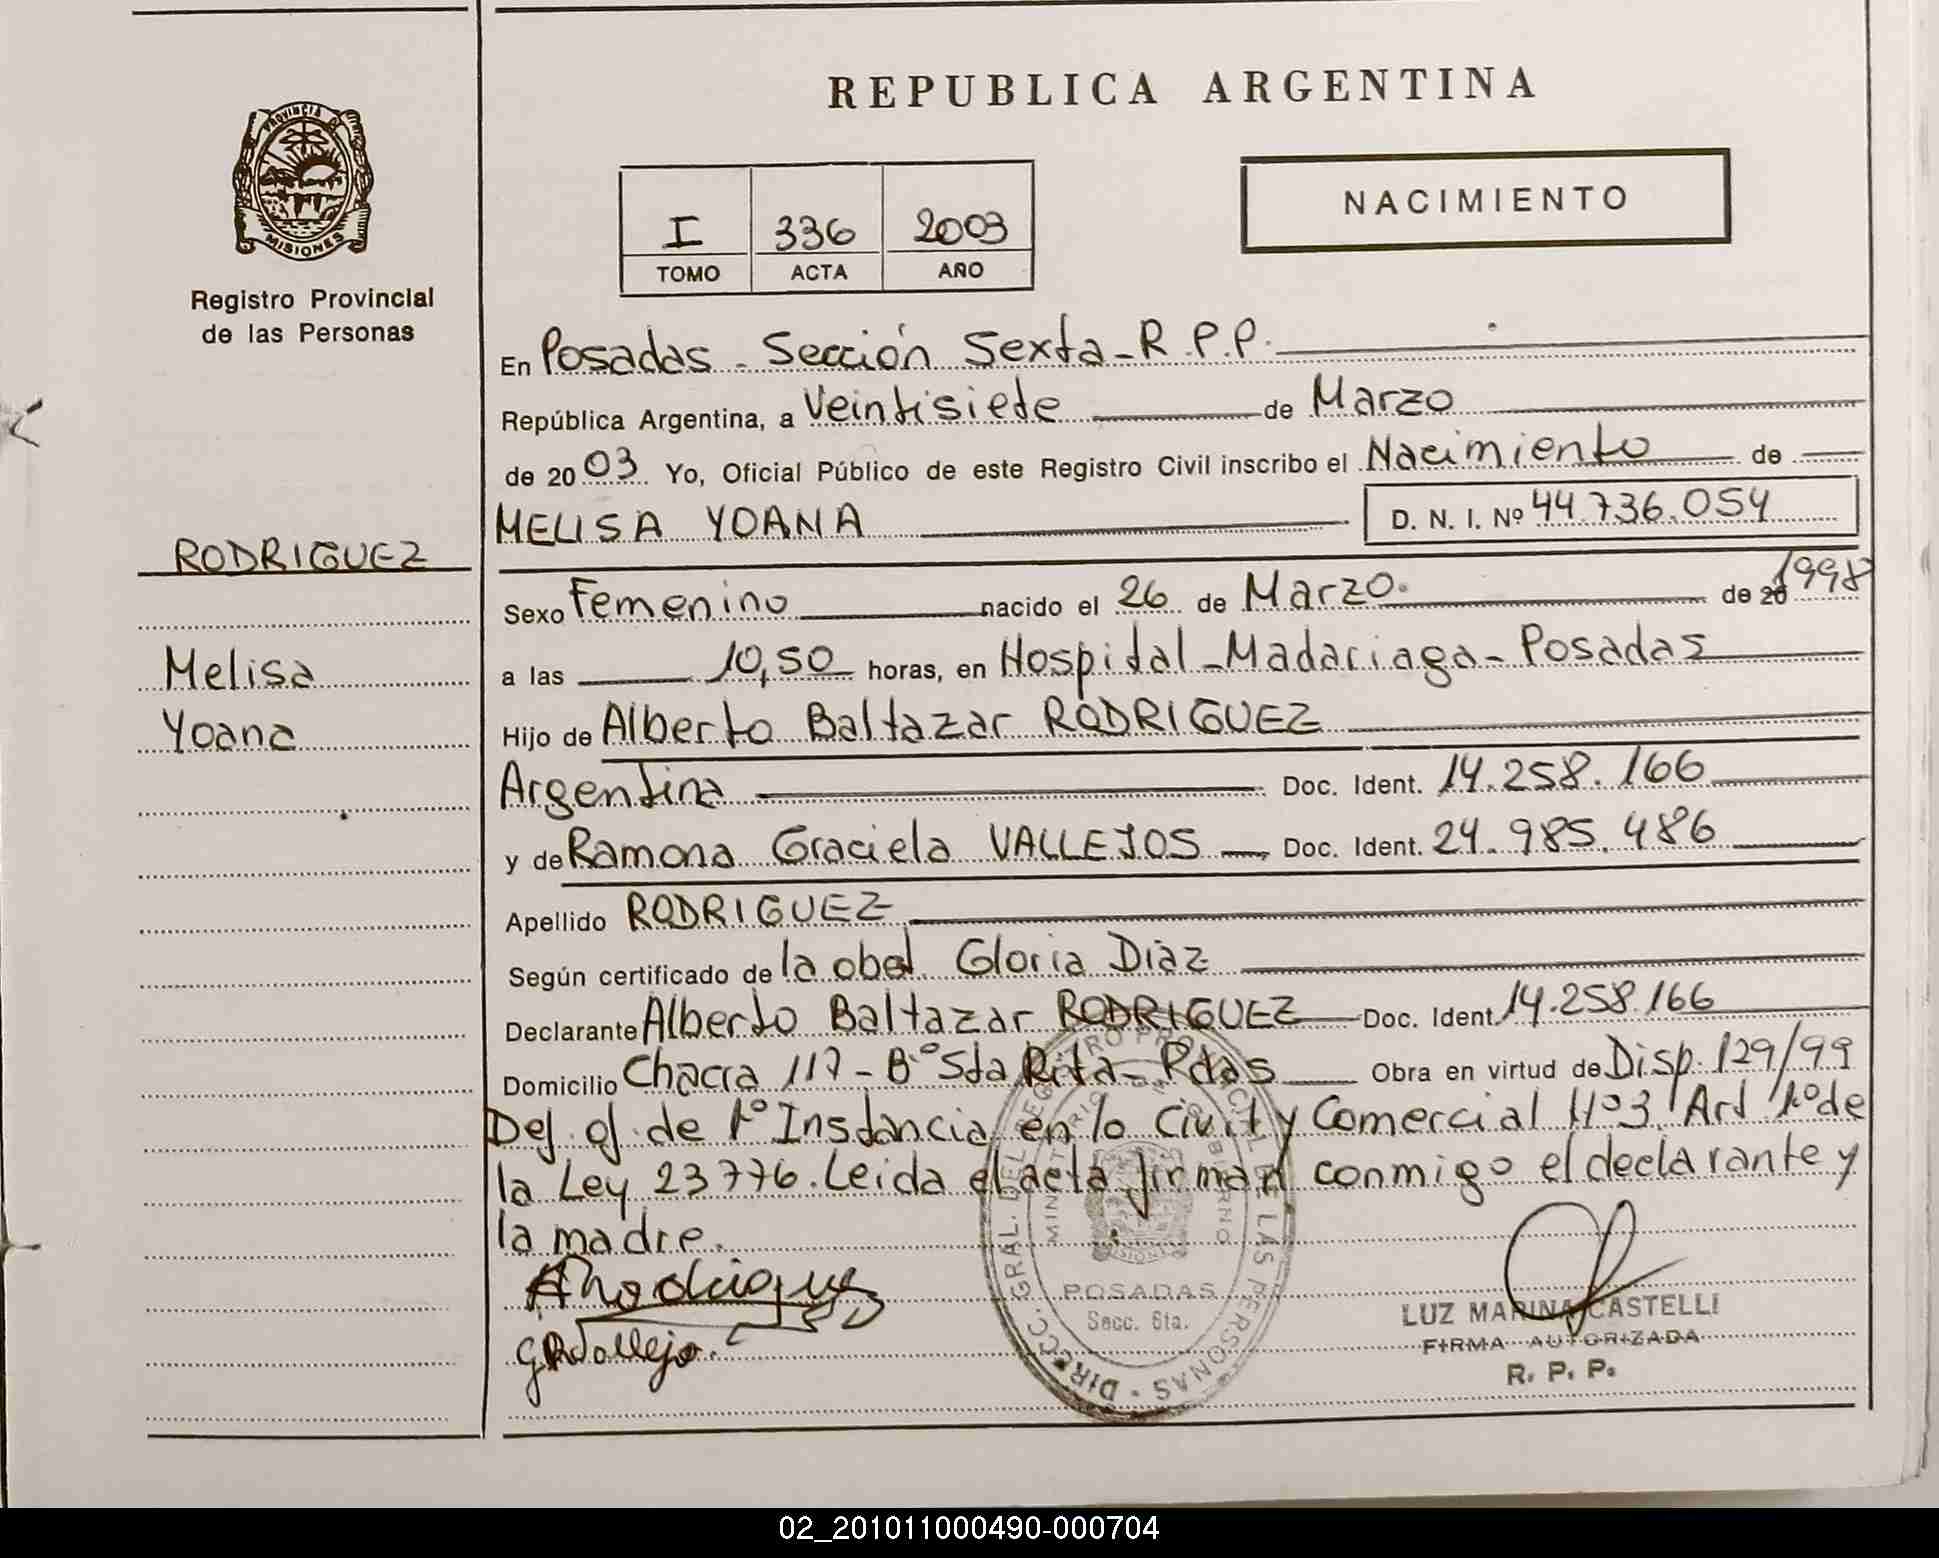 REPUBLICA ARGENTINA
PROVINCIA DE
MISIONES
Registro Provincial
de las Personas
I 336 2003
TOMO ACTA AÑO
NACIMIENTO
En Posadas - Sección Sexta - R.P.P.
República Argentina, a Veintisiete de Marzo
de 2003 Yo, Oficial Público de este Registro Civil inscribo el Nacimiento de
MELISA YOANA D. N. I. Nº 44.736.054
RODRIGUEZ
Sexo Femenino nacido el 26 de Marzo. de 20 1998
Melisa
a las 10,50 horas, en Hospital - Madariaga - Posadas
Yoana
Hijo de Alberto Baltazar RODRIGUEZ
Argentina Doc. Ident. 14.258.166
y de Ramona Graciela VALLEJOS Doc. Ident. 24.985.486
Apellido RODRIGUEZ
Según certificado de la obst. Gloria Diaz
Declarante Alberto Baltazar RODRIGUEZ Doc. Ident. 14.258.166
Domicilio Chacra 117 - Bº Sta Rita - Pdas Obra en virtud de Disp. 129/99
Def. of. de 1º Instancia en lo Civil y Comercial Nº 3. Art 1º de
la Ley 23776. Leida el acta firman conmigo el declarante y
la madre.
ARodriguez
GRVallejo.
DIRECC. GRAL. DEL REGISTRO PROVINCIAL DE LAS PERSONAS
MINISTERIO DE GOBIERNO
MISIONES
POSADAS
Secc. 6ta.
LUZ MARINA CASTELLI
FIRMA AUTORIZADA
R. P. P.
02_201011000490-000704